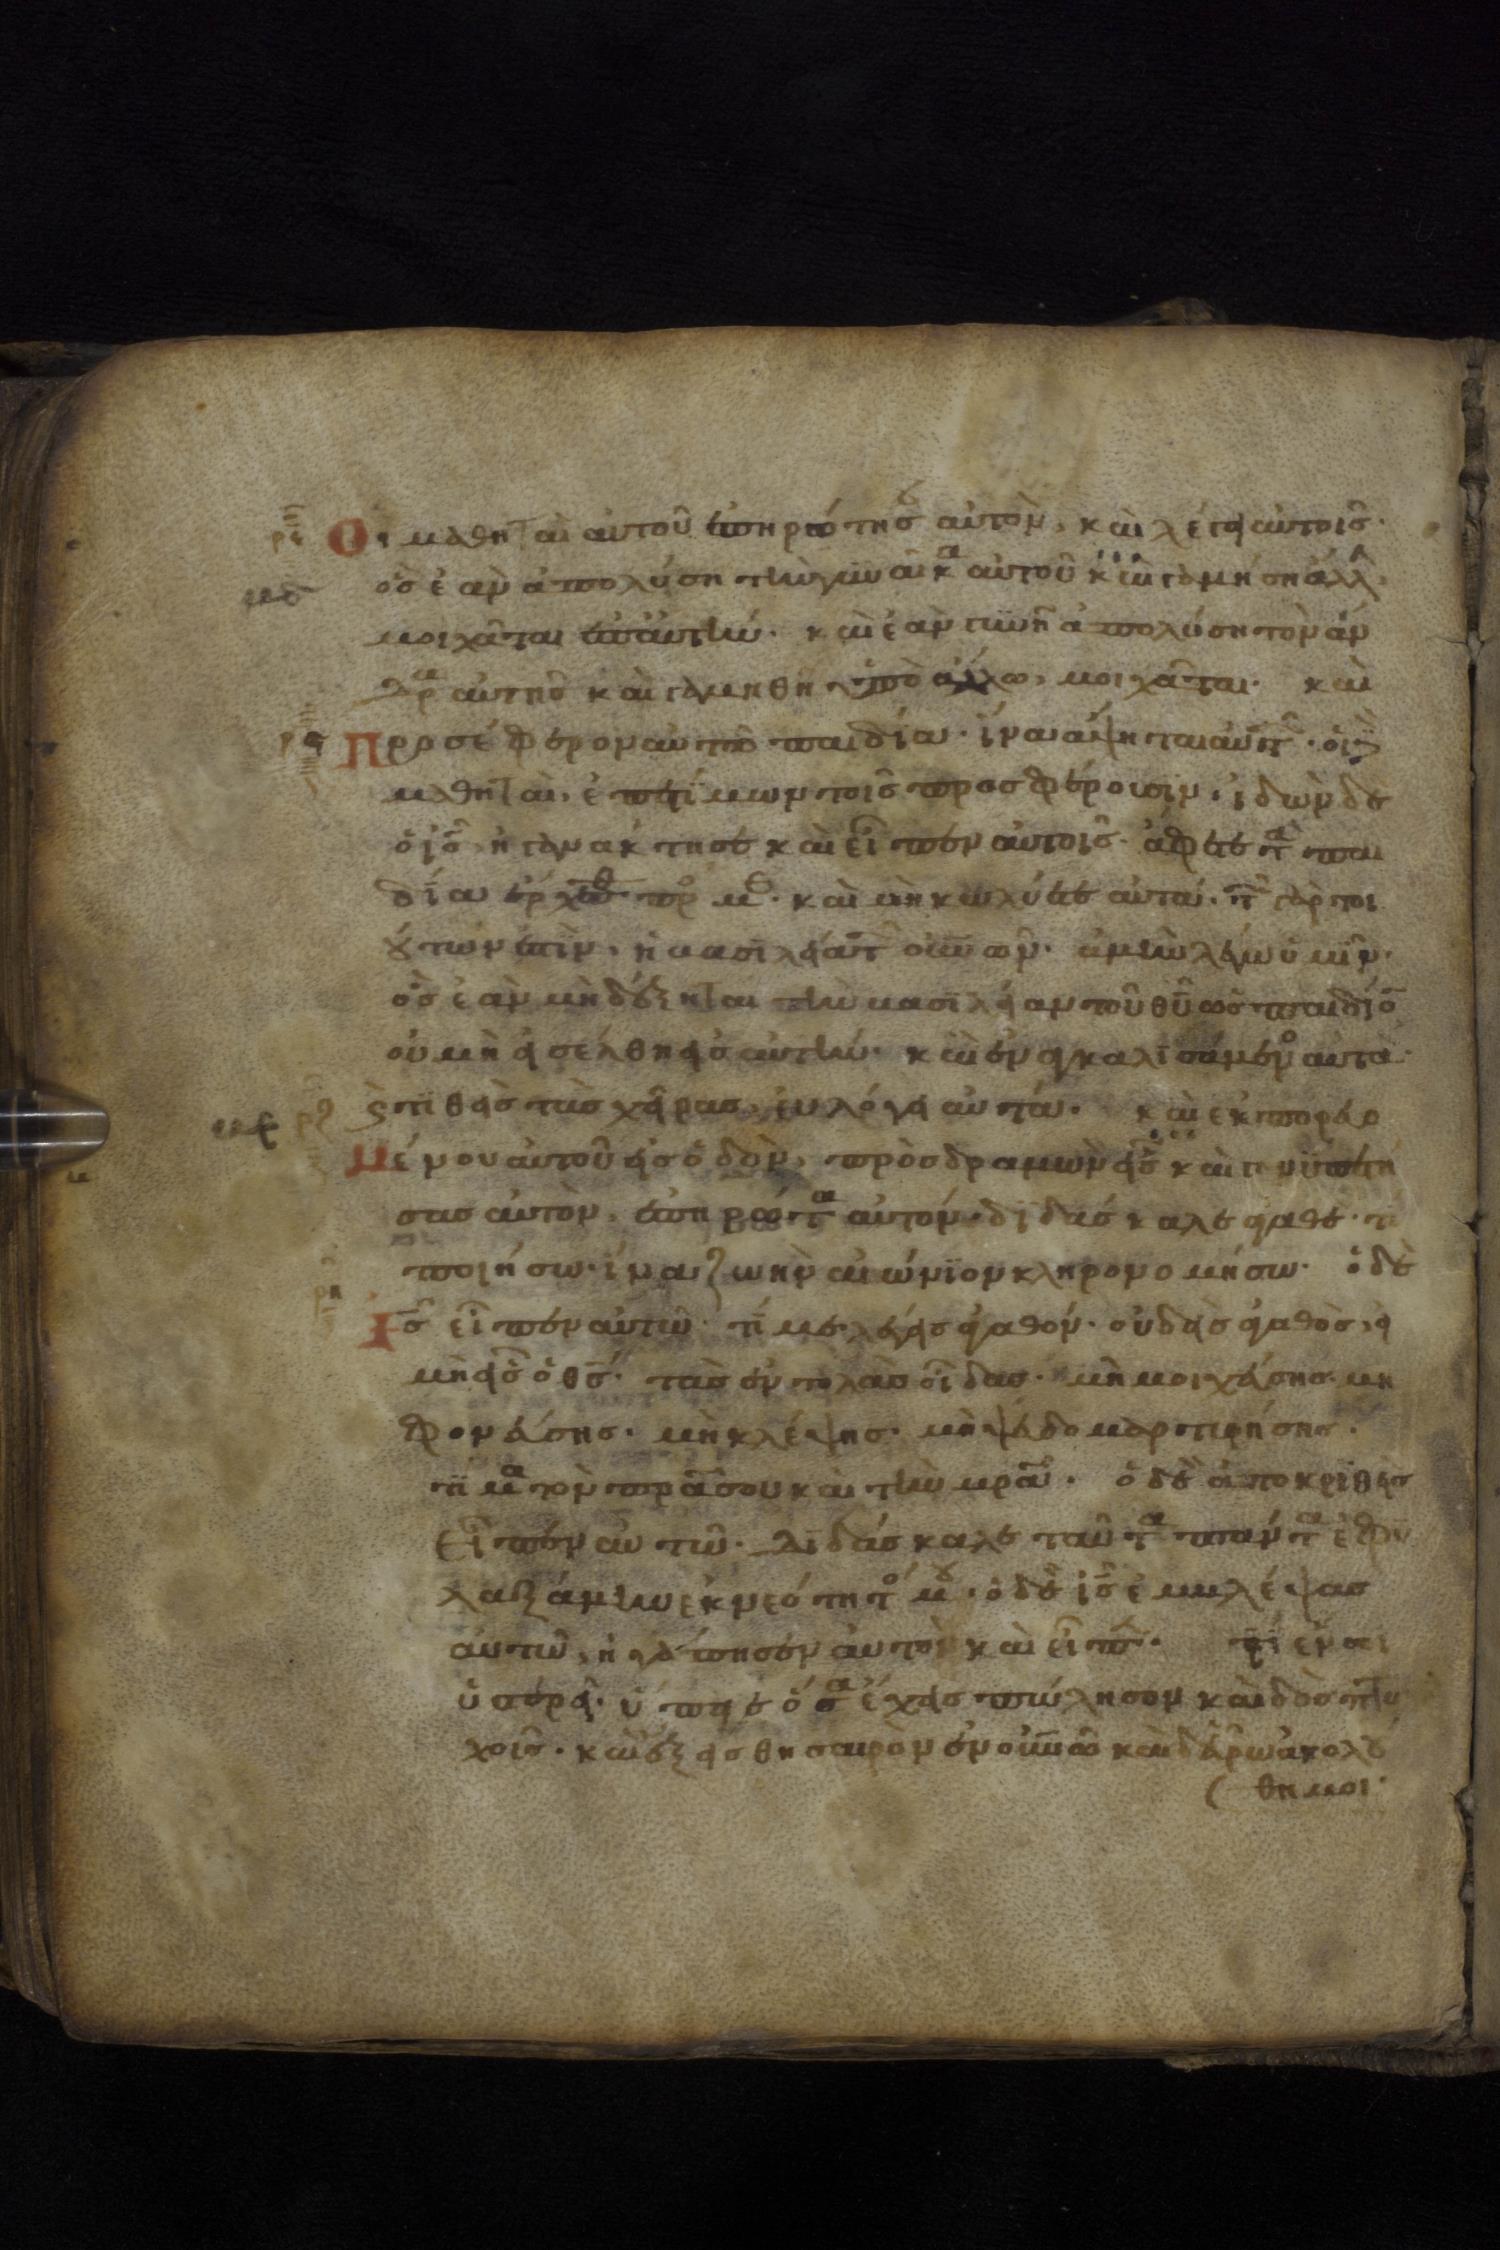 Οι μαθηταὶ αὐτοῦ ἐπηρώτησ αὐτὸν, καὶ λέγει αὐτοῖς·
ὃς ἐὰν ἀπολύση τὴν γυναῖκα αὐτοῦ καὶ γαμήση ἄλλ
μοιχᾶται ἐπ αὐτήν· καὶ ἐὰν γυνὴ ἀπολύση τὸν ἄν
δρα αὐτῆς καὶ γαμηθῆ ἄλλω, μοιχᾶται· καὶ
Προσέφερον αὐτῶ παιδία· ἵνα ἅψηται αὐτ· οἱ δὲ
μαθηταὶ, ἐπετίμων τοῖς προσφέρουσιν· ἰδὼν δὲ
ὁ ἰς ἠγανάκτησε καὶ εἶπεν αὐτοῖς· ἄφετε τὰ παι
δία ἔρχεσθ πρ μ· καὶ μὴ κωλύετε αὐτά· τ γὰρ τοι
ούτων ἐστὶν, ἡ βασιλεία τ οὐνῶν· ἀμὴν λέγω ὑμῖν·
ὃς ἐὰν μὴ δέξηται τὴν βασιλείαν τοῦ θυ ὡς παιδίο
οὐ μὴ εἰσέλθη εἰς αὐτήν· καὶ ἐναγκαλισάμενο αὐτὰ·
ἐπιθεὶς τὰς χεῖρας, εὐλόγει αὐτά· καὶ ἐκπορευο
μένου αὐτοῦ εἰς ὁδὸν, προσδραμὼν εἷς καὶ γονυπετή
σας αὐτὸν, ἐπηρώτα αὐτόν· διδάσκαλε ἀγαθέ· τί
ποιήσω· ἵνα ζωὴν αἰώνιον κληρονομήσω· ὁ δὲ
Ις εἶπεν αὐτῶ· τί με λέγεις ἀγαθόν· οὐδεὶς ἀγαθὸς, εἰ
μὴ εἷς ὁ θς· τὰς ἐντολὰς οἶδας· μὴ μοιχεύσης· μὴ
φονεύσης· μὴ κλέψης· μὴ ψευδομαρτυρήσης·
τίμα τὸν πρα σου καὶ τὴν μρα· ὁ δὲ ἀποκριθεὶς
εἶπεν αὐτῶ· Διδάσκαλε ταῦτα πάντα ἐφυ
λαξάμην ἐκ νεότητο μου· ὁ δὲ ἰς ἐμβλέψας
αὐτῶ, ἠγάπησεν αὐτὸν καὶ εἶπε· ἕν σοι
ὑστερεῖ· ὕπαγε ὅσα ἔχεις πώλησον καὶ δὸς πτω
χοῖς· καὶ ἕξεις θησαυρὸν ἐν οὐνῶ καὶ δεῦρο ἀκολού
θη μοι·